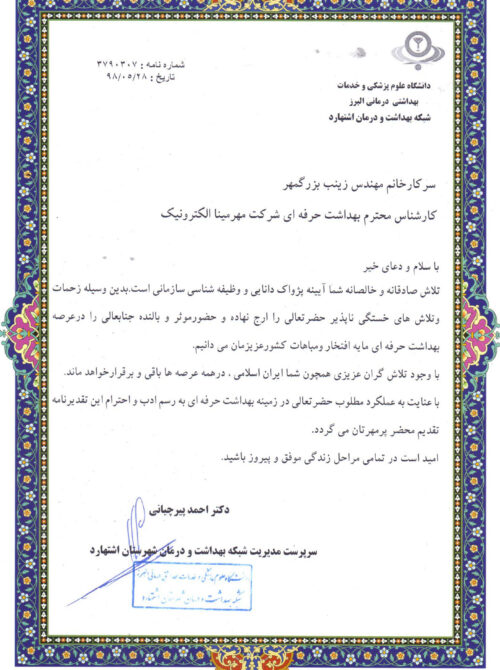 شماره نامه : ۳۷۹۰۳۰۷
تاریخ : ۹۸/۰۵/۲۸
دانشگاه علوم پزشکی و خدمات
بهداشتی درمانی البرز
شبکه بهداشت و درمان اشتهارد
سرکارخانم مهندس زینب بزرگمهر
کارشناس محترم بهداشت حرفه ای شرکت مهرمینا الکترونیک
با سلام و دعای خیر
تلاش صادقانه و خالصانه شما آیینه پژواک دانایی و وظیفه شناسی سازمانی است.بدین وسیله زحمات
وتلاش های خستگی ناپذیر حضرتعالی را ارج نهاده و حضورموثر و بالنده جنابعالی را درعرصه
بهداشت حرفه ای مایه افتخار ومباهات کشورعزیزمان می دانیم.
با وجود تلاش گران عزیزی همچون شما ایران اسلامی ، درهمه عرصه ها باقی و برقرارخواهد ماند.
با عنایت به عملکرد مطلوب حضرتعالی در زمینه بهداشت حرفه ای به رسم ادب و احترام این تقدیرنامه
تقدیم محضر پرمهرتان می گردد.
امید است در تمامی مراحل زندگی موفق و پیروز باشید.
دکتر احمد پیرچبانی
سرپرست مدیریت شبکه بهداشت و درمان شهرستان اشتهارد
دانشگاه علوم پزشکی و خدمات بهداشتی درمانی البرز
شبکه بهداشت و درمان شهرستان اشتهارد